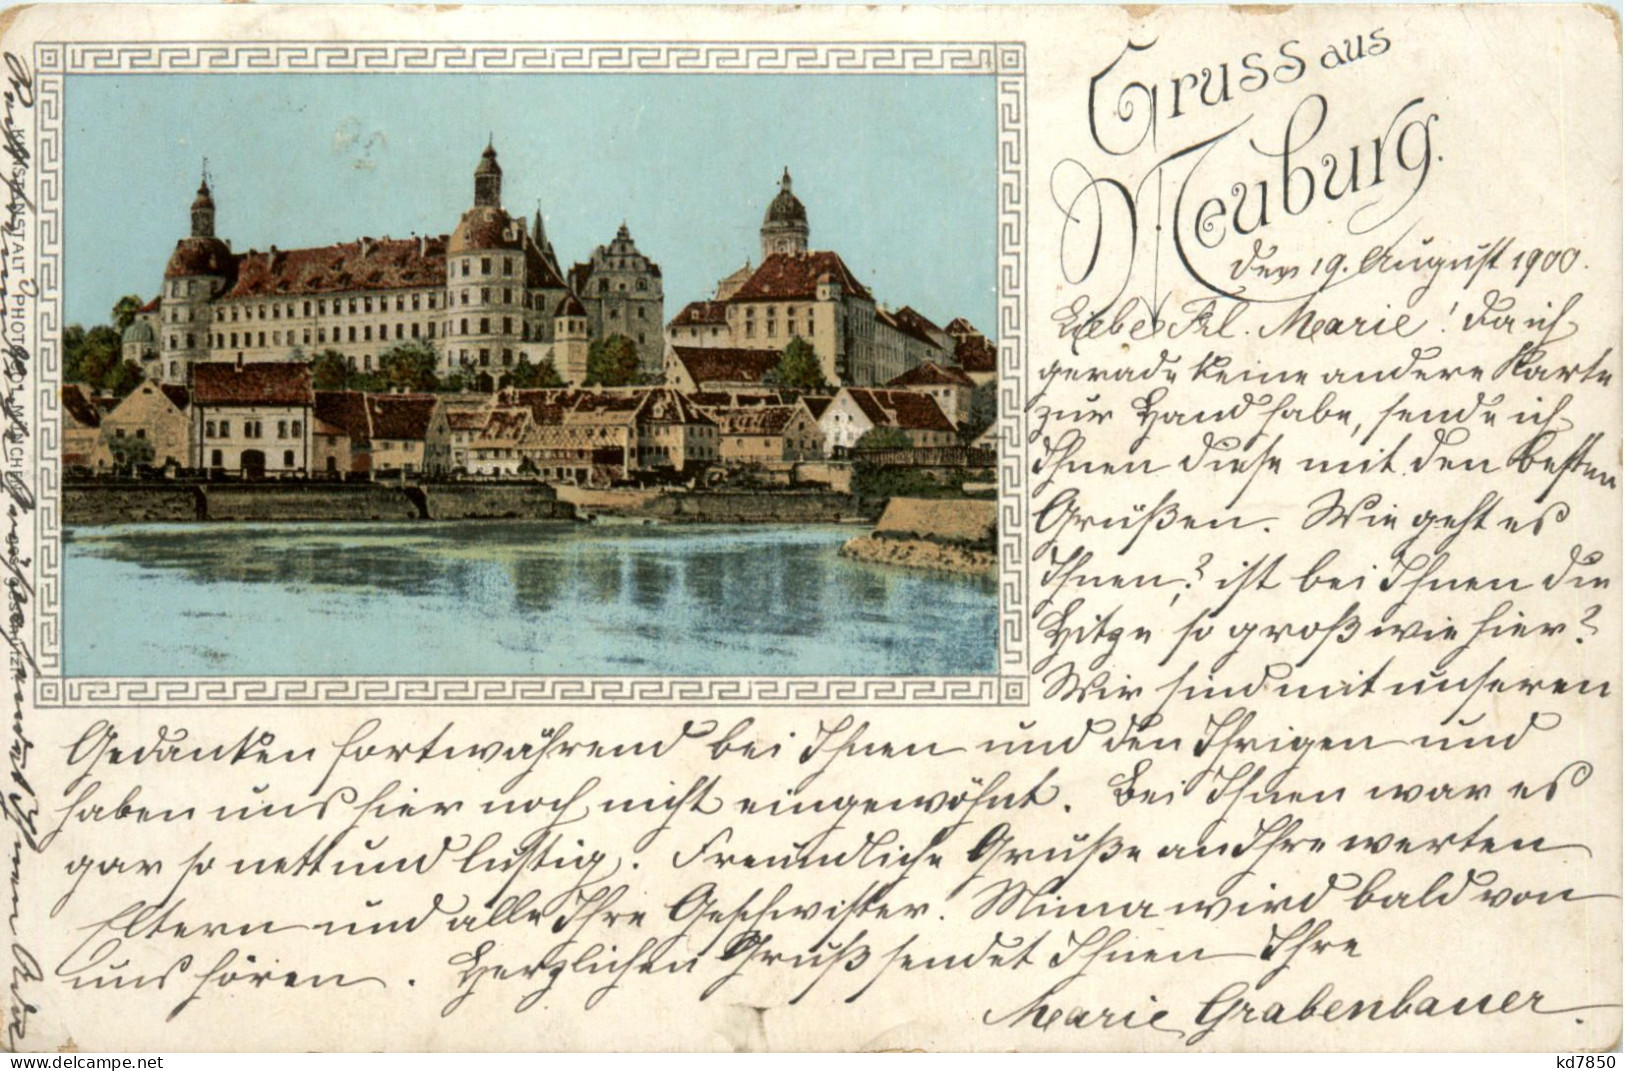 Gruss aus
Neuburg.
den 19. August 1900.
Liebes Frl. Marie! Da ich
gerade keine andere Karte
zur Hand habe, sende ich
Ihnen diese mit den besten
Grüßen. Wie geht es
Ihnen? ist bei Ihnen die
Hitze so groß wie hier?
Wir sind mit unseren
Gedanken fortwährend bei Ihnen und den Ihrigen und
haben uns hier noch nicht eingewöhnt. Bei Ihnen war es
gar so nett und lustig. Freundliche Grüße an Ihre werten
Eltern und alle Ihre Geschwister. Mima wird bald von
uns hören. Herzlichen Gruß sendet Ihnen Ihre
Marie Grabenbauer.
KUNSTANSTALT PHOTOCOL MÜNCHEN
kd7850
delcampe.net